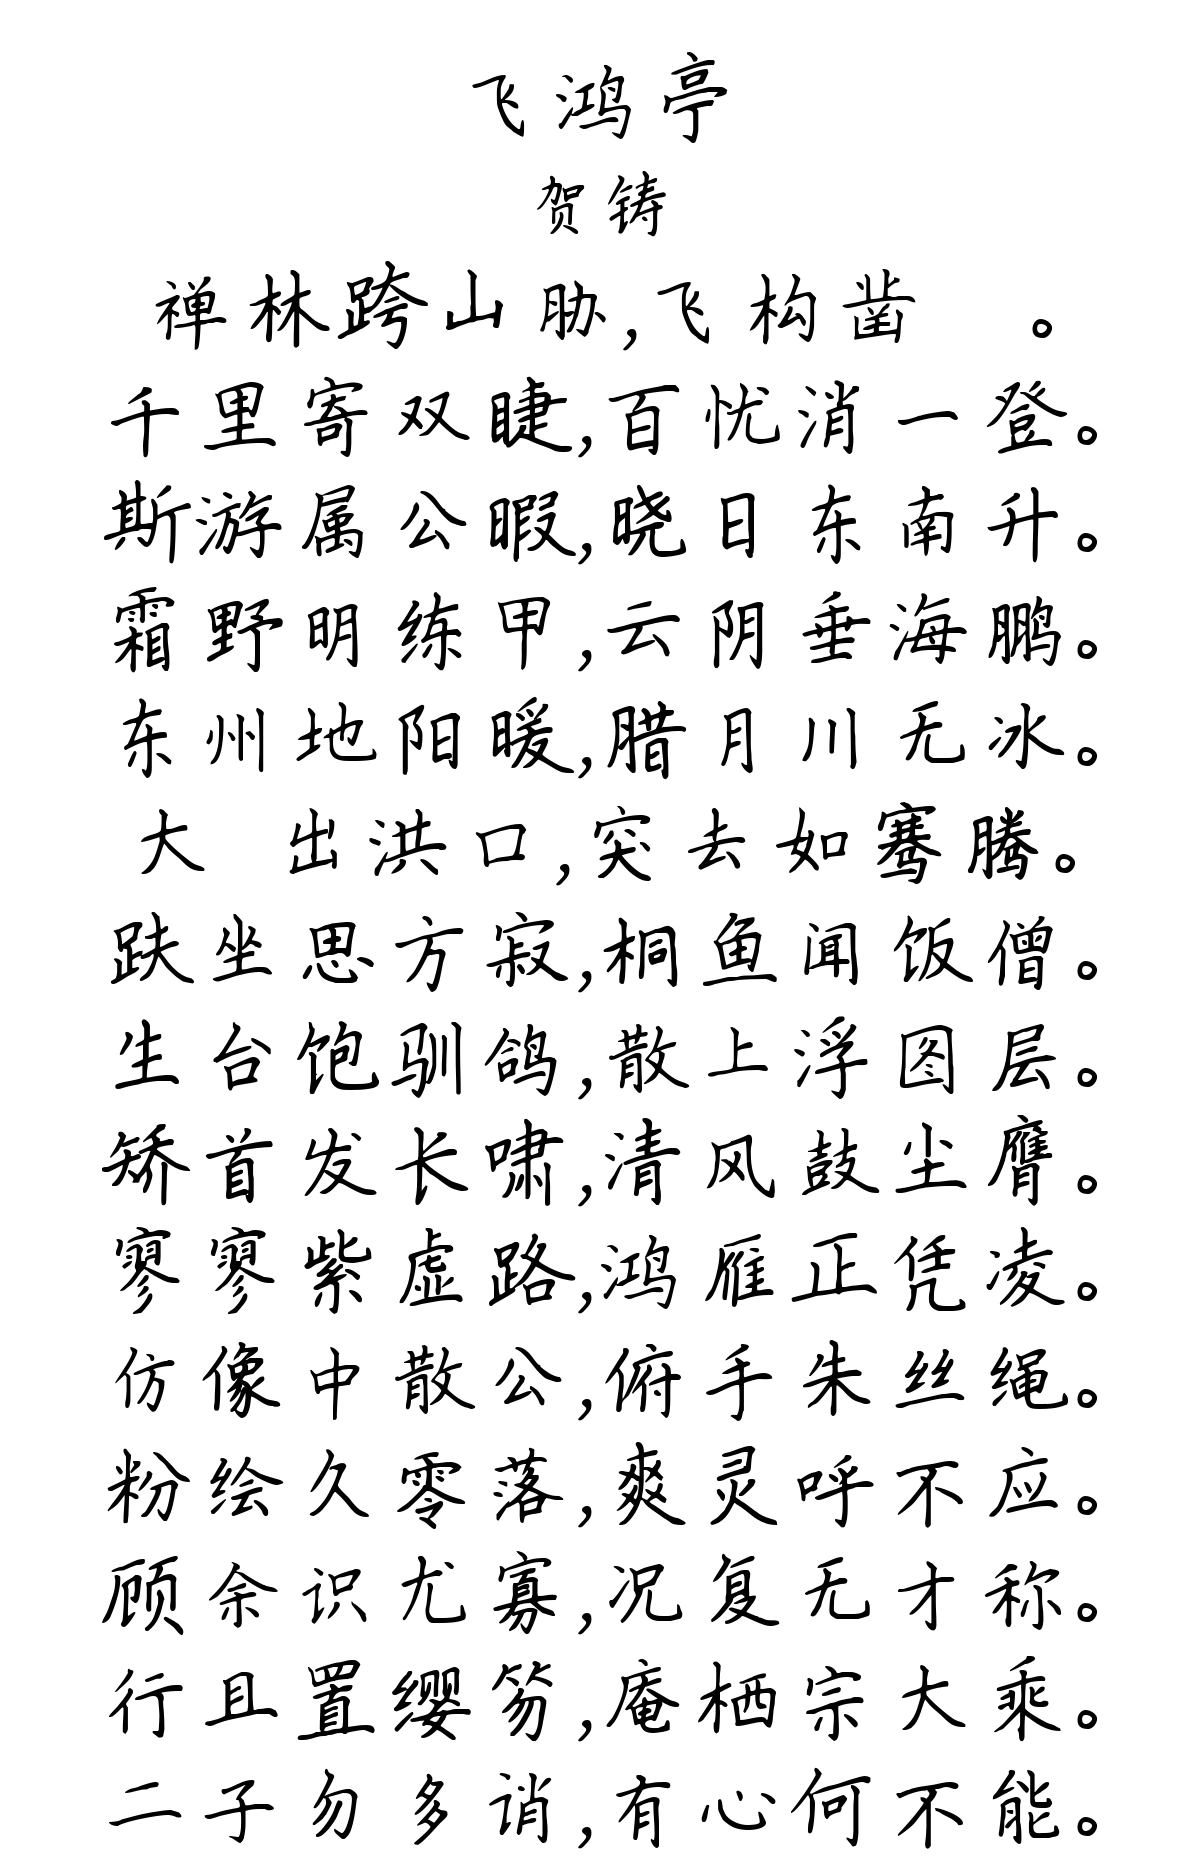 飞鸿亭
贺铸
禅林跨山胁,飞构凿 。
千里寄双睫,百忧消一登。
斯游属公暇,晓日东南升。
霜野明练甲,云阴垂海鹏。
东州地阳暖,腊月川无冰。
大 出洪口,突去如骞腾。
趺坐思方寂,桐鱼闻饭僧。
生台饱驯鸽,散上浮图层。
矫首发长啸,清风鼓尘膺。
寥寥紫虚路,鸿雁正凭凌。
仿像中散公,俯手朱丝绳。
粉绘久零落,爽灵呼不应。
顾余识尤寡,况复无才称。
行且置缨笏,庵栖宗大乘。
二子勿多诮,有心何不能。